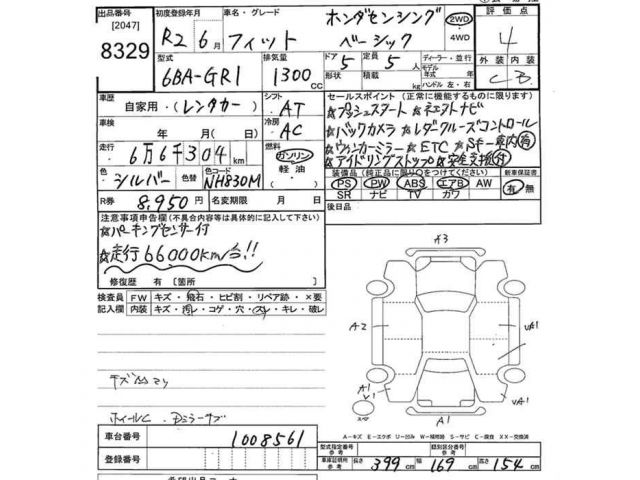 出品番号 [2047] 8329
初度登録年月 R2 6月
車名・グレード フィット ホンダセンシング ベーシック
2WD・4WD
評価点 4
型式 6BA-GR1
排気量 1300cc
ドア 5 形状
定員 5人 積載 kg
ディーラー・並行
モデル年式 年式
ハンドル 左・右
外装 C 内装 B
車歴 自家用・(レンタカー)
シフト AT
車検 年 月(日)
冷房 AC
走行 6万6千304km
燃料 ガソリン 軽油
シルバー 色替
色コード NH830M
R券 8,950円
名変期限 月 日
セールスポイント(正常に機能するものに限ります)
☆プッシュスタート ☆ネエクトナビ
☆バックカメラ ☆レーダークルーズコントロール
☆ウィンカーミラー ☆ETC ☆Sキー車内有
☆アイドリングストップ ☆安全支援付
装備品(純正品に限り○をつけてください)
PS PW ABS エアB AW
SR ナビ TV カワ
新車保証書 有・無
後日品
注意事項申告欄(不具合内容等は具体的に記入して下さい)
☆パーキングセンサー付
☆走行66000km台!!
修復歴 有[箇所 ]
検査員記入欄
FW キズ・飛石・ヒビ割・リペア跡・×要
内装 キズ・汚レ・コゲ・穴・スレ・キレ・破レ
ホイールC
A3
A2
UA1
A1
UA1
A1
スペア
A-キズ E-エクボ U-凹み W-補修跡 S-サビ C-腐食 XX-交換済
車台番号 1008561
登録番号
型式指定番号 参考
類別区分番号 参考
車庫証明用 参考 長さ 399cm 幅 169cm 高さ 154cm